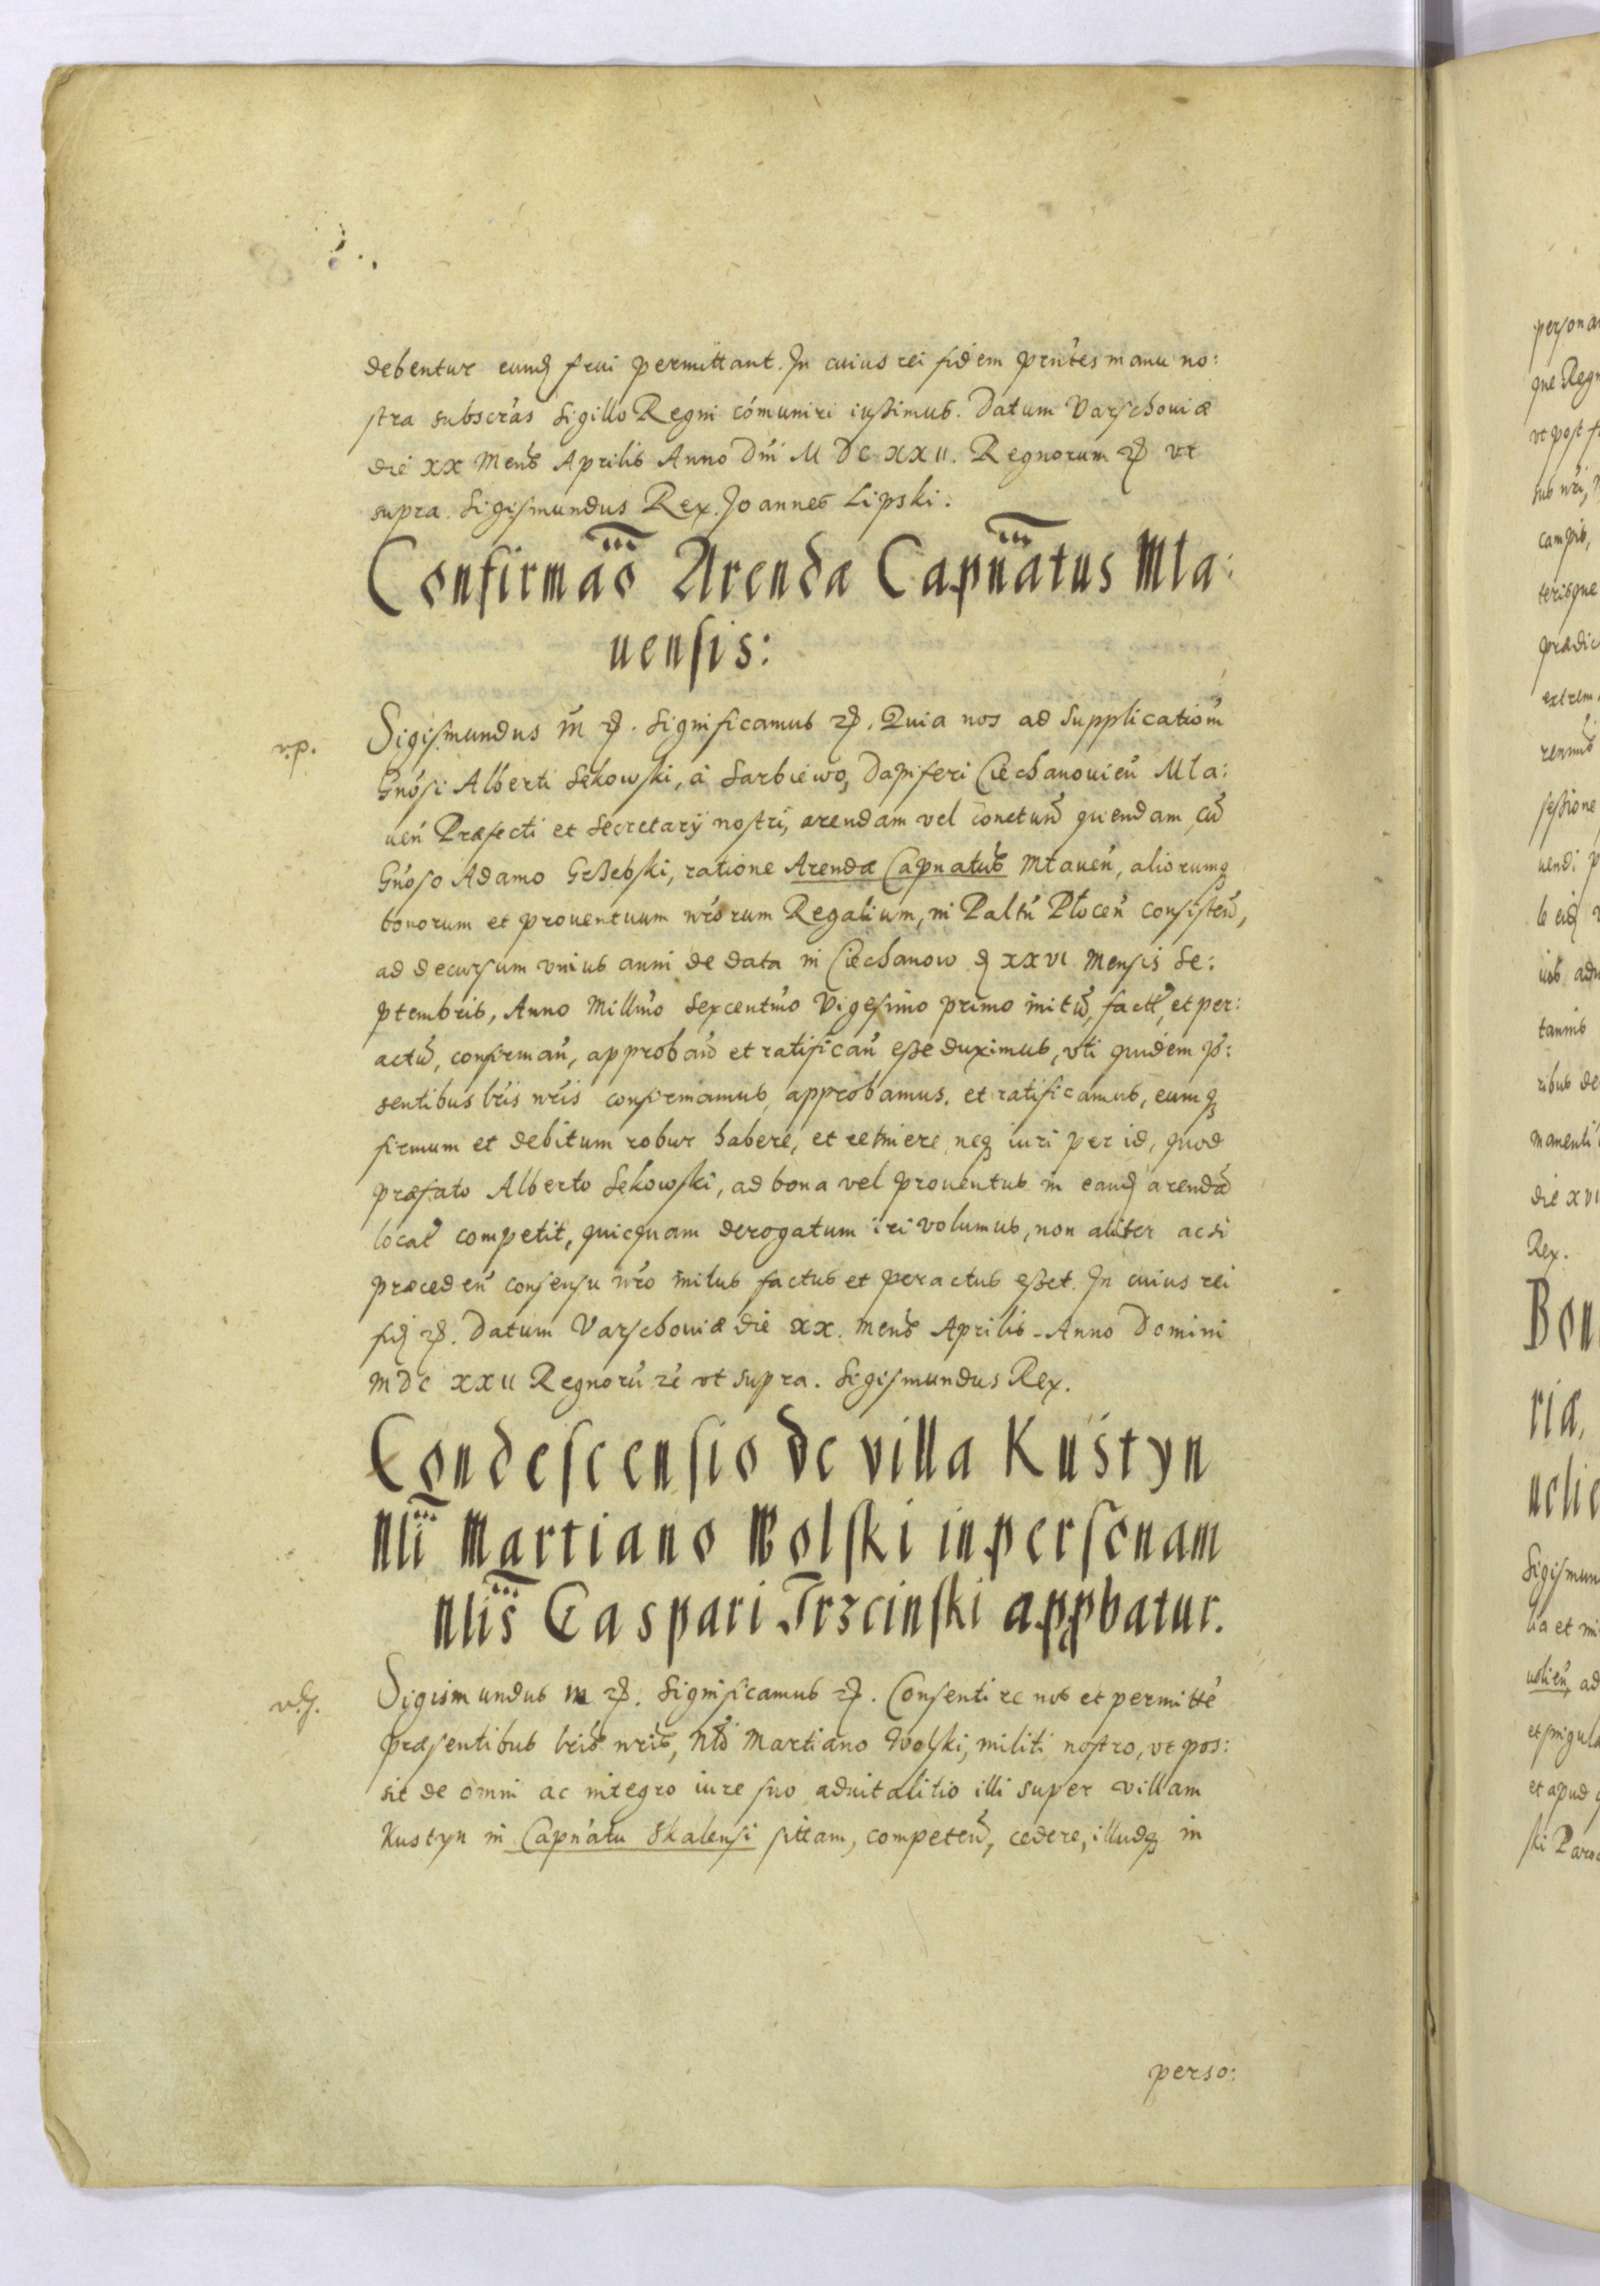 debentur eund frui permittant. In cuius rei fidem prñtes manu no:
stra subscr̃as Sigillo Regni cõmuniri iussimus. Datum Varschouiæ
die XX Mens Aprilis Anno Dñi M DC XXII. Regnorum ꝛc ut
supra. Sigismundus Rex. Joannes Lipski.
Confirmão Arenda Capñatus Mla:
uensis:
v.p. Sigismundus III ꝛc. Significamus ꝛc. Quia nos ad supplicatioñ
Gnõsi Alberti Sekowski, à Sarbiewo, Dapiferi Ciechanouieñ Mla:
ueñ Præfecti et Secretarÿ nostri, arendam vel contctum quendam, cũ
Gnõso Adamo Grzebski, ratione Arendæ Capnatus Mlaueñ, aliorumq
bonorum et prouentuum nr̃orum Regalium, in Paltũ Płoceñ consisteñ,
ad decursum vnius anni de data in Ciechanow d XXVI Mensis Se:
ptembris, Anno Millmõ Sexcentmõ Vigesimo primo initũ, factũ, et per:
actũ, confirmañ, approbañ et ratificañ esse duximus, vti quidem p̃:
sentibus lr̃is nr̃is confirmamus, approbamus, et ratificamus, eumq
firmum et debitum robur habere, et retinere, neq iuri per id, quod
præfato Alberto Sekowski, ad bona vel prouentus in eand arendã
locat competit, quicquam derogatum iri volumus, non aliter acsi
præcedeñ consensu nr̃o initus factus et peractus esset. In cuius rei
fid ꝛc. Datum Varschouiæ die XX. Mens Aprilis Anno Domini
MDC XXII Regnorũ ꝛc ut supra. Sigismundus Rex.
Condescensio de villa Kustyn
Nli Martiano Wolski in personam
Nlis Caspari Trzcinski appbatur.
Sigismundus III ꝛc. Significamus ꝛc. Consentire nos et permitte
præsentibus lr̃is nr̃is, Nli Martiano Wolski, militi nostro, ut pos:
sit de omni ac integro iure suo aduitalitio illi super villam
Kustyn in Capñatu Skalensi sittam, competeñ, cedere, illudq in
perso: